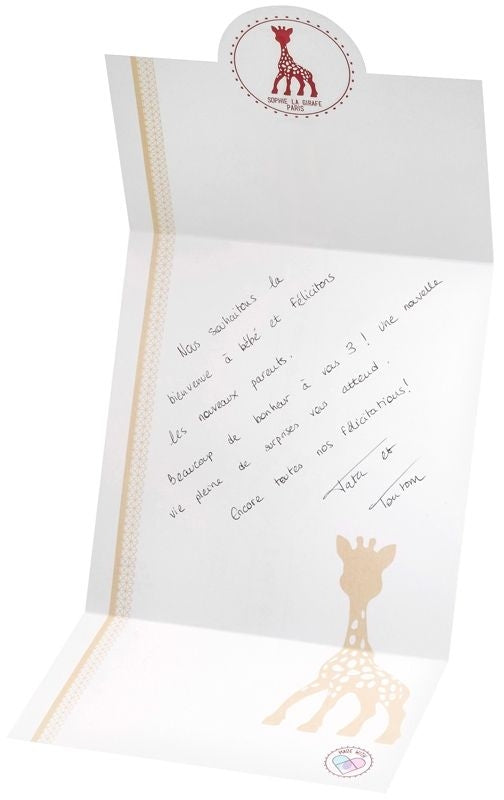 SOPHIE LA GIRAFE
PARIS
Nous souhaitons la
bienvenue à bébé et félicitons
les nouveaux parents.
Beaucoup de bonheur à vous 3! Une nouvelle
vie pleine de surprises vous attend.
Encore toutes nos félicitations!
Tata et
Tonton
MADE WITH